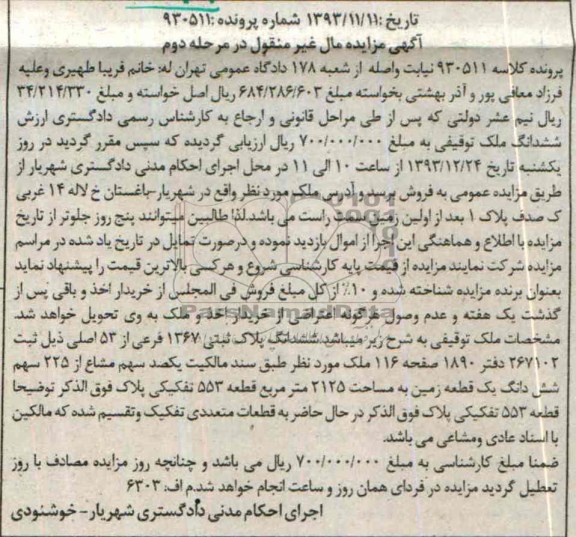 تاریخ :۱۳۹۳/۱۱/۱۱ شماره پرونده :۹۳۰۵۱۱
آگهی مزایده مال غیر منقول در مرحله دوم
پرونده کلاسه ۹۳۰۵۱۱ نیابت واصله از شعبه ۱۷۸ دادگاه عمومی تهران له: خانم فریبا طهیری وعلیه
فرزاد معافی پور و آذر بهشتی بخواسته مبلغ ۶۸۴/۲۸۶/۶۰۳ ریال اصل خواسته و مبلغ ۳۴/۲۱۴/۳۳۰
ریال نیم عشر دولتی که پس از طی مراحل قانونی و ارجاع به کارشناس رسمی دادگستری ارزش
ششدانگ ملک توقیفی به مبلغ ۷۰۰/۰۰۰/۰۰۰ ریال ارزیابی گردیده که سپس مقرر گردید در روز
یکشنبه تاریخ ۱۳۹۳/۱۲/۲۴ از ساعت ۱۰ الی ۱۱ در محل اجرای احکام مدنی دادگستری شهریار از
طریق مزایده عمومی به فروش برسد و آدرس ملک مورد نظر واقع در شهریار-باغستان خ لاله ۱۴ غربی
ک صدف پلاک ۱ بعد از اولین زمین سمت راست می باشد.لذا طالبین میتوانند پنج روز جلوتر از تاریخ
مزایده با اطلاع و هماهنگی این اجرا از اموال بازدید نموده و درصورت تمایل در تاریخ یاد شده در مراسم
مزایده شرکت نمایند مزایده از قیمت پایه کارشناسی شروع و هرکسی بالاترین قیمت را پیشنهاد نماید
بعنوان برنده مزایده شناخته شده و ۱۰٪ از کل مبلغ فروش فی المجلس از خریدار اخذ و باقی پس از
گذشت یک هفته و عدم وصول هرگونه اعتراض از خریدار اخذ و ملک به وی تحویل خواهد شد.
مشخصات ملک توقیفی به شرح زیر میباشد ششدانگ پلاک ثبتی ۱۳۶۷ فرعی از ۵۳ اصلی ذیل ثبت
۲۶۷۱۰۲ دفتر ۱۸۹۰ صفحه ۱۱۶ ملک مورد نظر طبق سند مالکیت یکصد سهم مشاع از ۲۲۵ سهم
شش دانگ یک قطعه زمین به مساحت ۲۱۲۵ متر مربع قطعه ۵۵۳ تفکیکی پلاک فوق الذکر توضیحا
قطعه ۵۵۳ تفکیکی پلاک فوق الذکر در حال حاضر به قطعات متعددی تفکیک وتقسیم شده که مالکین
با اسناد عادی ومشاعی می باشد.
ضمنا مبلغ کارشناسی به مبلغ ۷۰۰/۰۰۰/۰۰۰ ریال می باشد و چنانچه روز مزایده مصادف با روز
تعطیل گردید مزایده در فردای همان روز و ساعت انجام خواهد شد.م اف: ۶۳۰۳
اجرای احکام مدنی دادگستری شهریار- خوشنودی